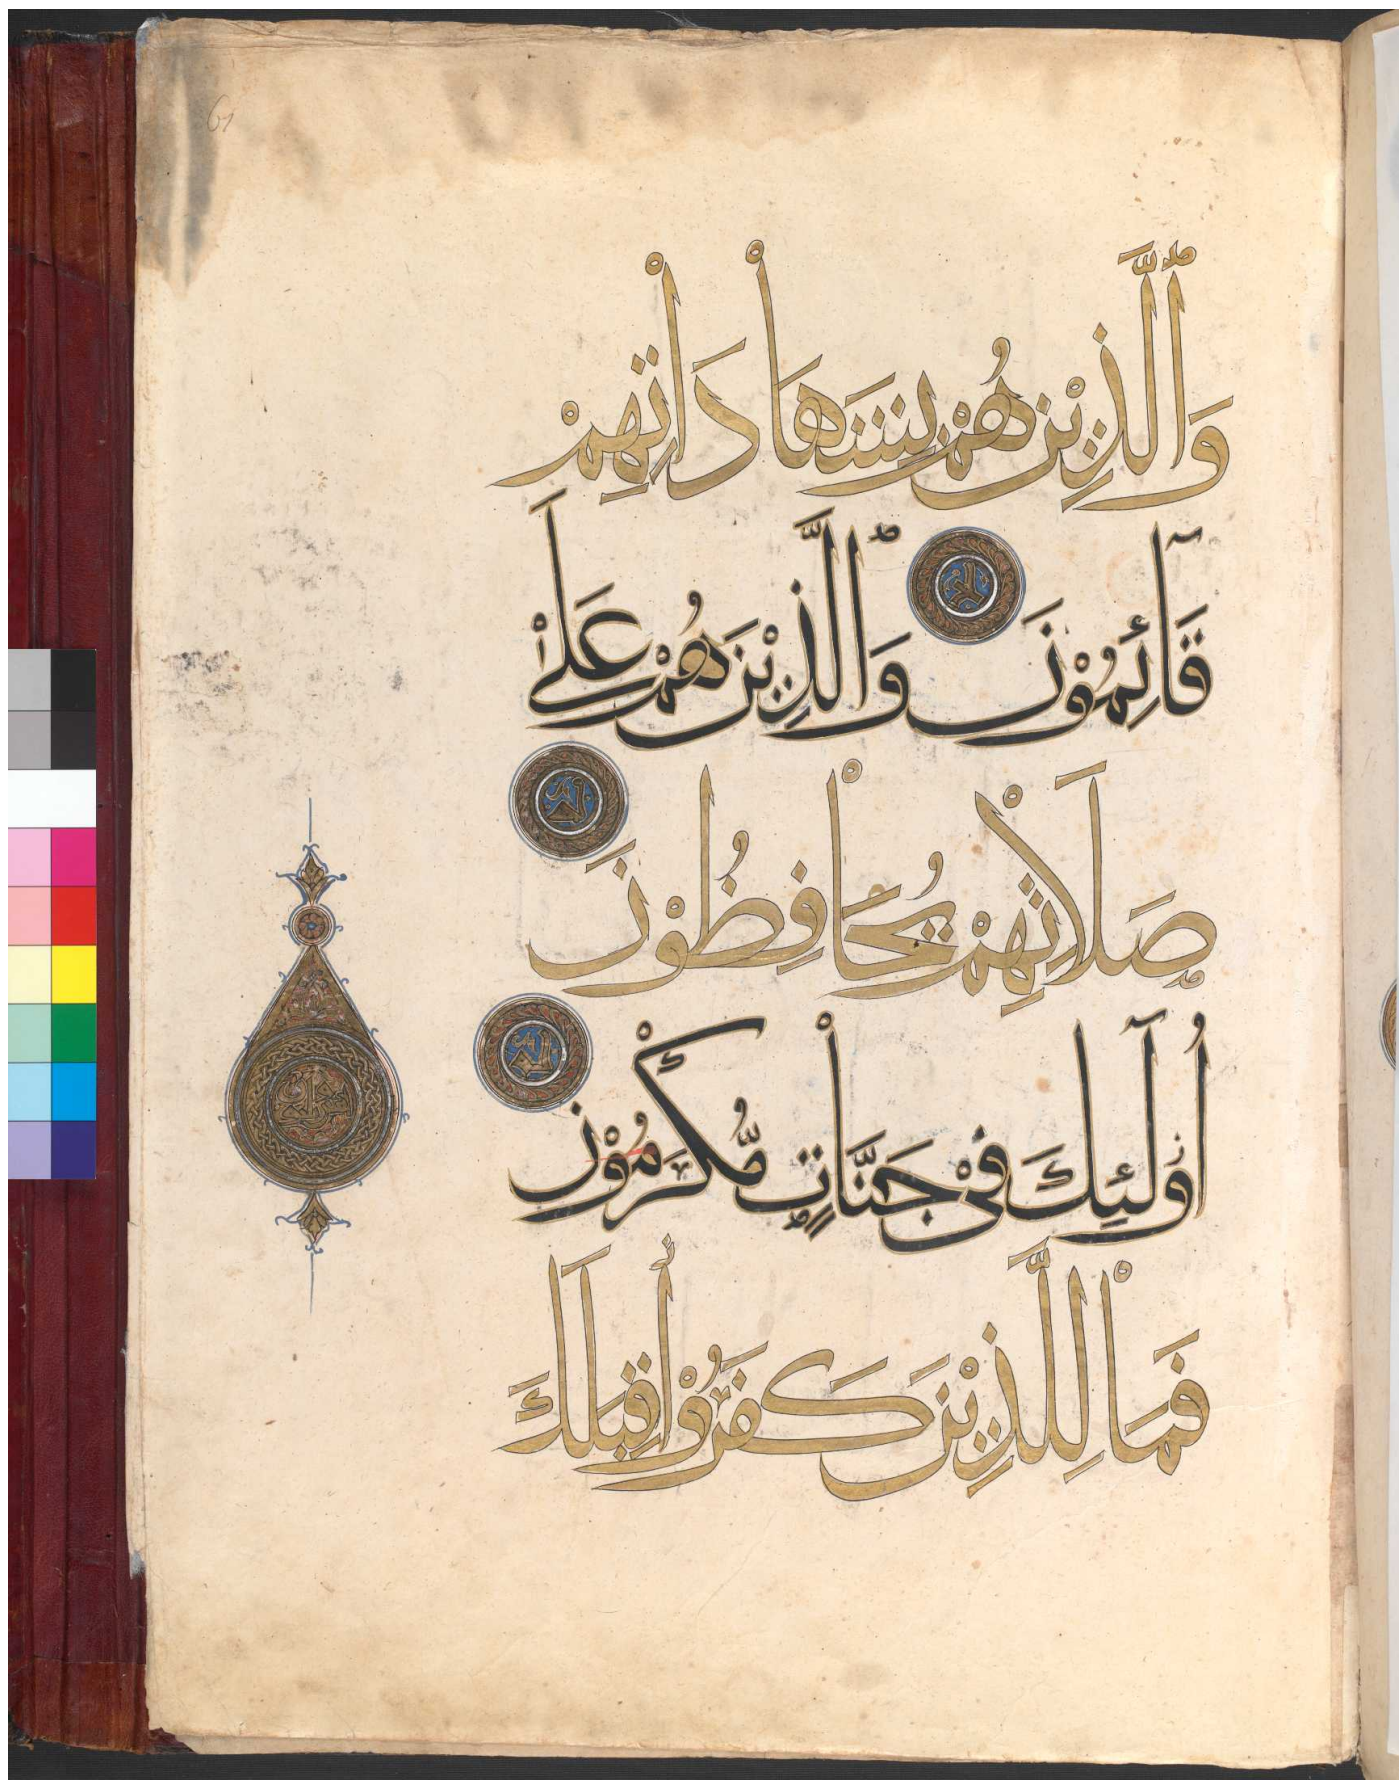 وَٱلَّذِيْنَ هُمْ بِشَهَادَاتِهِمْ
قَآئِمُوْنَ وَٱلَّذِيْنَ هُمْ عَلَىْ
صَلَاتِهِمْ يُحَافِظُوْنَ
أُولَٓئِكَ فِيْ جَنَّاتٍ مُّكْرَمُوْنَ
فَمَالِ ٱلَّذِيْنَ كَفَرُوْا قِبَلَكَ